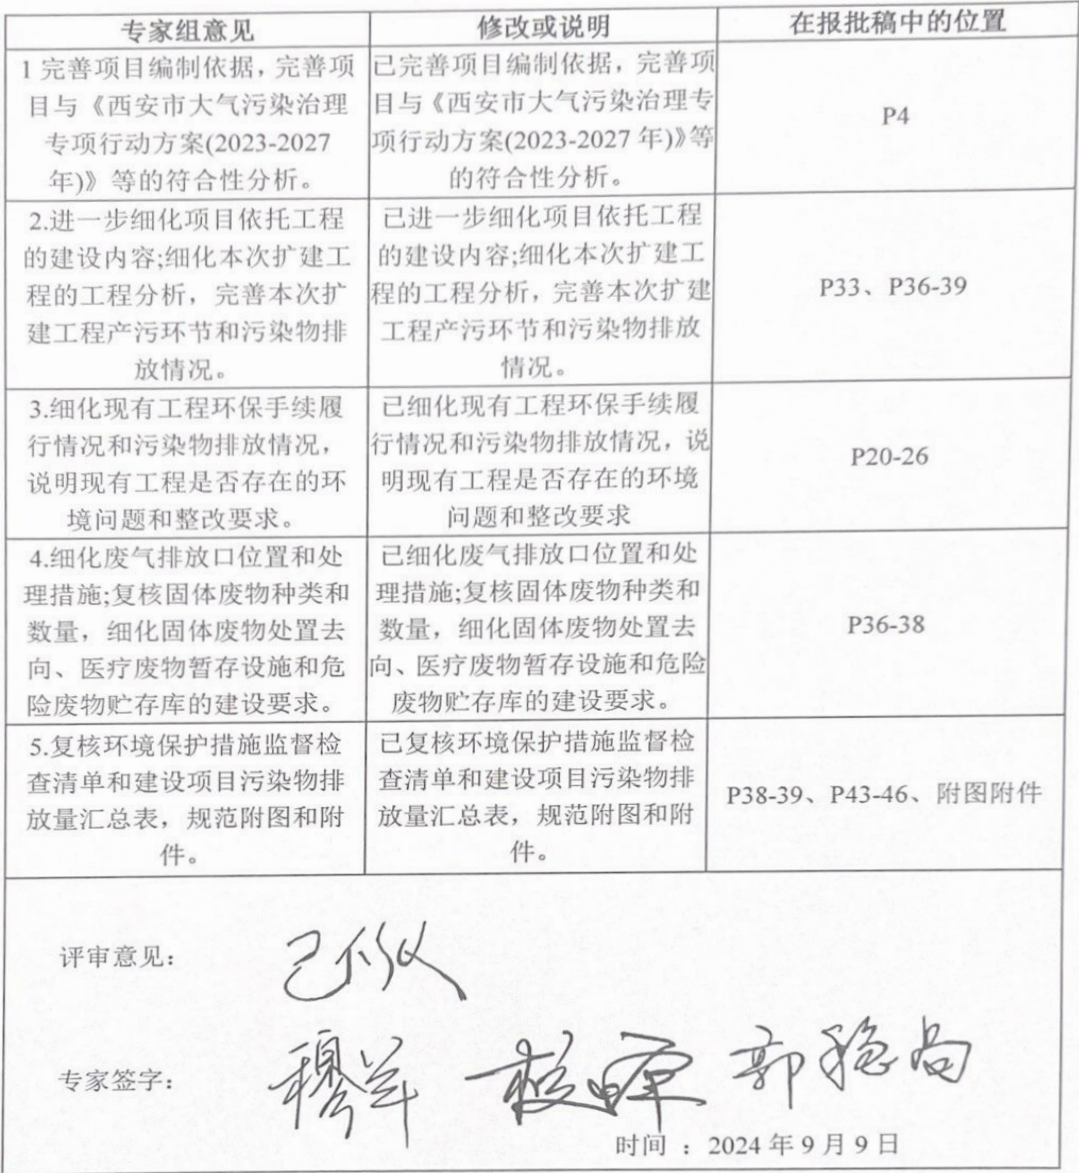 专家组意见 修改或说明 在报批稿中的位置
1 完善项目编制依据，完善项
目与《西安市大气污染治理
专项行动方案(2023-2027
年)》等的符合性分析。
已完善项目编制依据，完善项
目与《西安市大气污染治理专
项行动方案(2023-2027 年)》等
的符合性分析。
P4
2.进一步细化项目依托工程
的建设内容;细化本次扩建工
程的工程分析，完善本次扩
建工程产污环节和污染物排
放情况。
已进一步细化项目依托工程
的建设内容;细化本次扩建工
程的工程分析，完善本次扩建
工程产污环节和污染物排放
情况。
P33、P36-39
3.细化现有工程环保手续履
行情况和污染物排放情况，
说明现有工程是否存在的环
境问题和整改要求。
已细化现有工程环保手续履
行情况和污染物排放情况，说
明现有工程是否存在的环境
问题和整改要求
P20-26
4.细化废气排放口位置和处
理措施;复核固体废物种类和
数量，细化固体废物处置去
向、医疗废物暂存设施和危
险废物贮存库的建设要求。
已细化废气排放口位置和处
理措施;复核固体废物种类和
数量，细化固体废物处置去
向、医疗废物暂存设施和危险
废物贮存库的建设要求。
P36-38
5.复核环境保护措施监督检
查清单和建设项目污染物排
放量汇总表，规范附图和附
件。
已复核环境保护措施监督检
查清单和建设项目污染物排
放量汇总表，规范附图和附
件。
P38-39、P43-46、附图附件
评审意见：
专家签字：
时间 ：2024 年 9 月 9 日